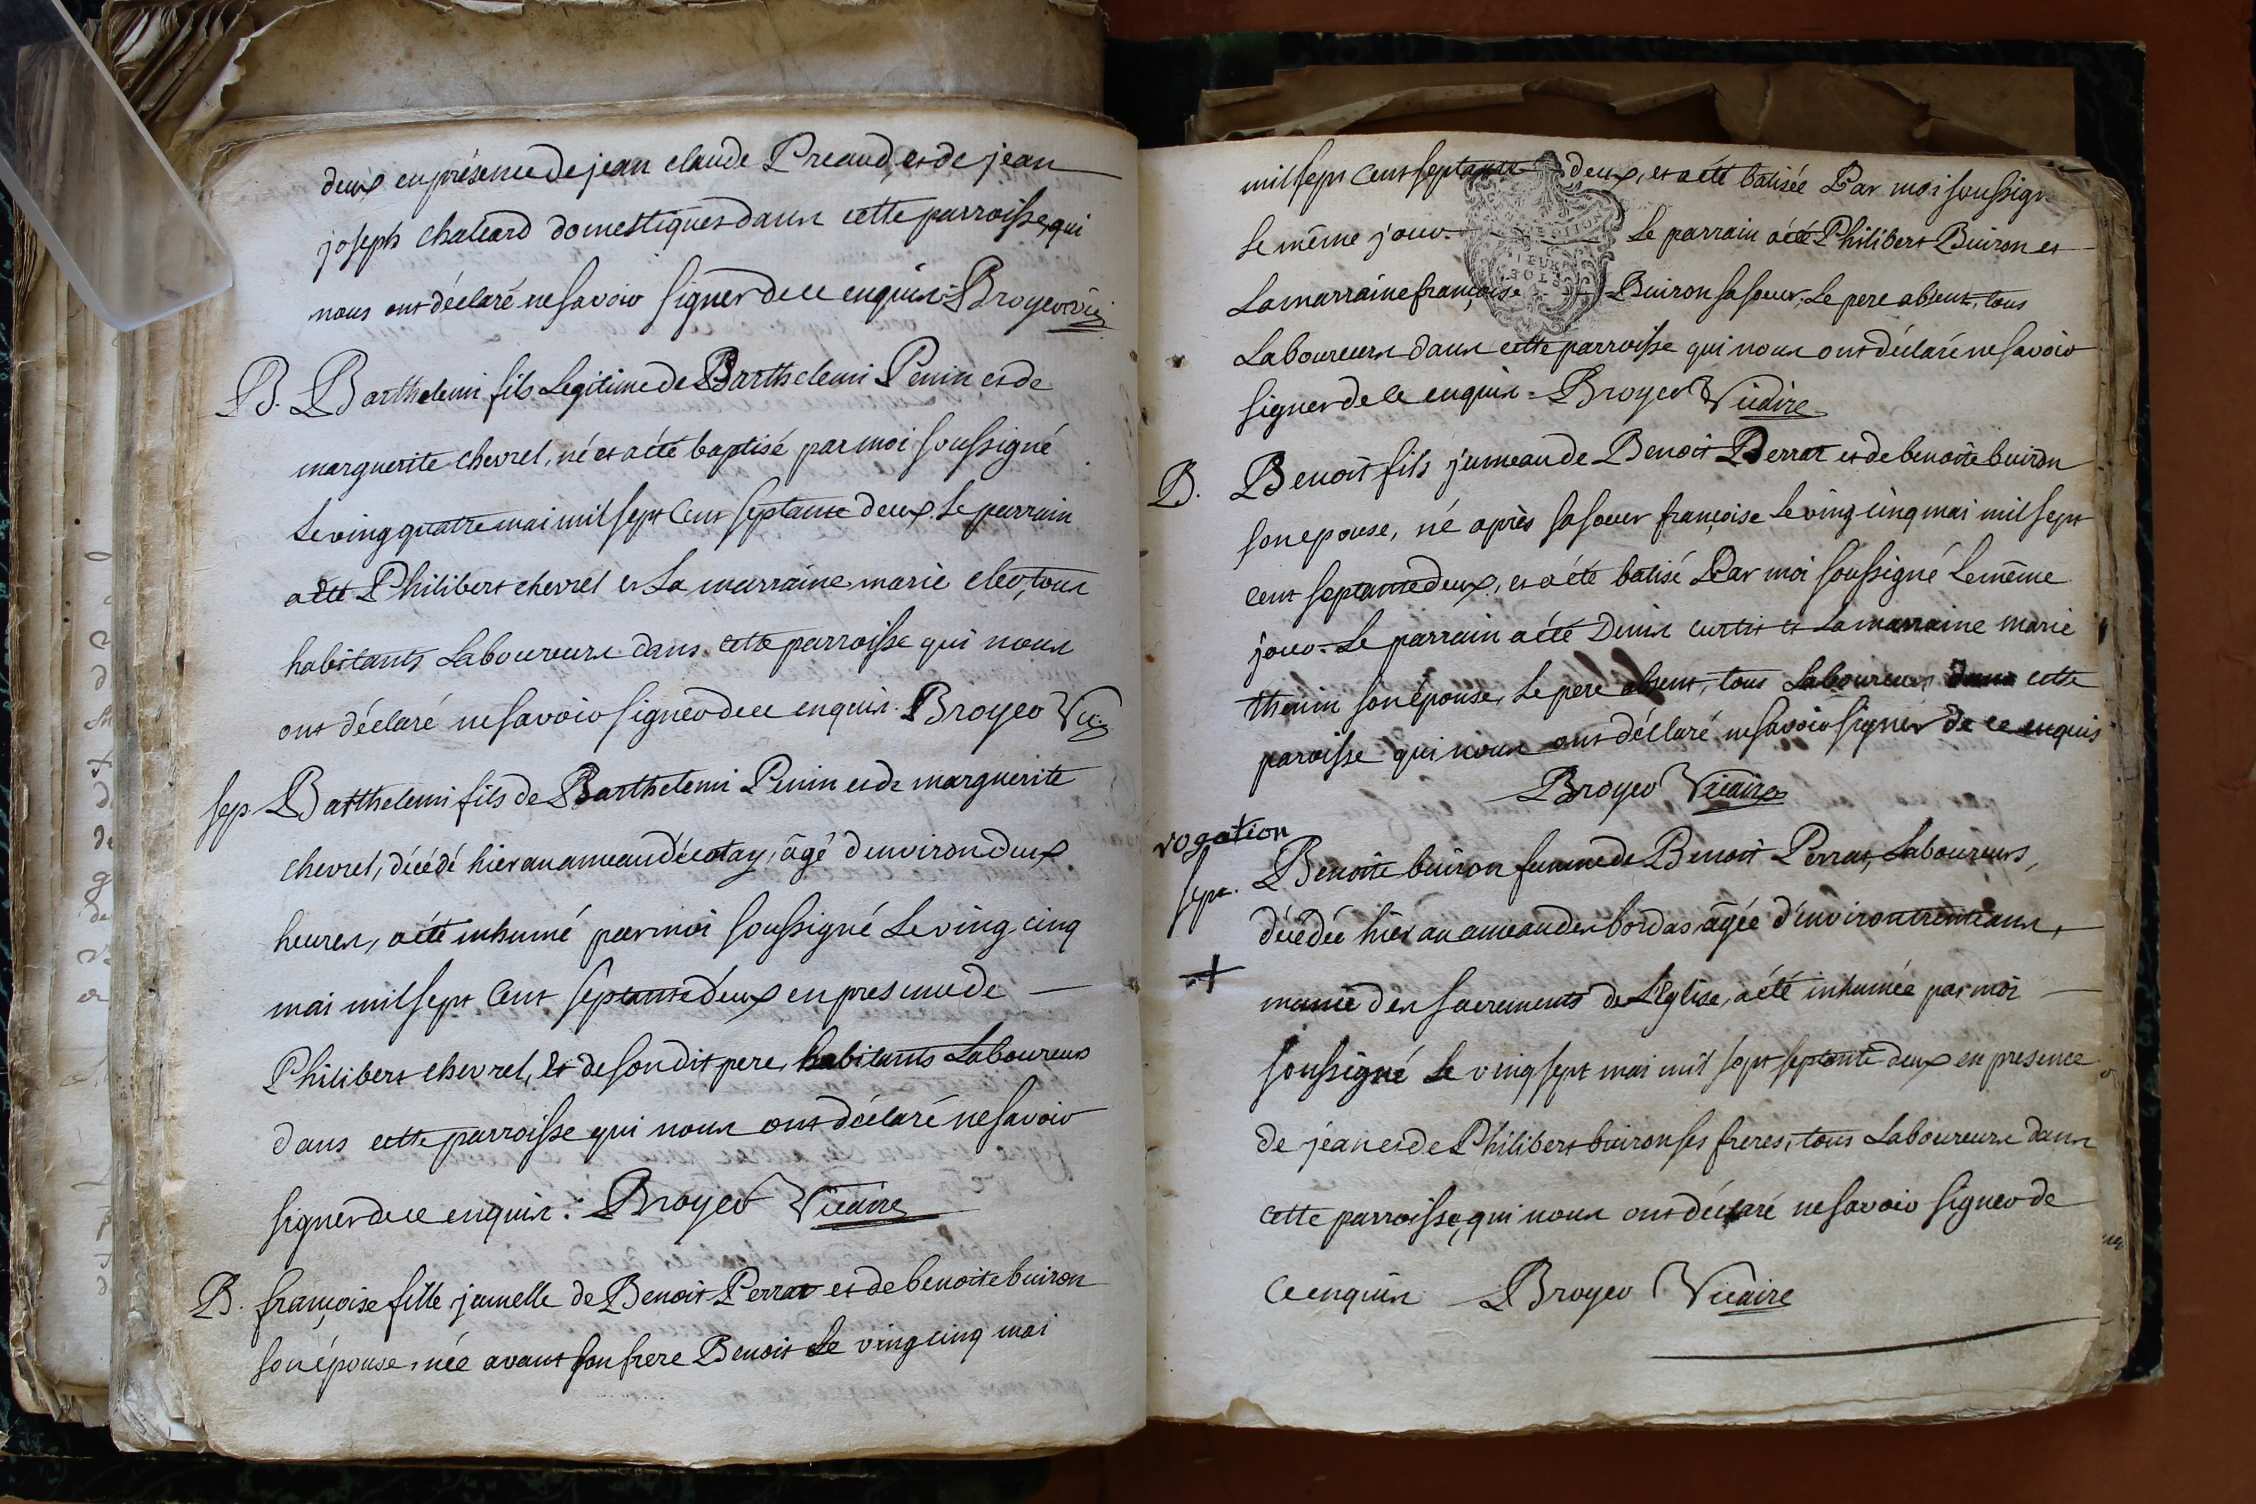 deux en présence de jean claude Preaud, et de jean
joseph chaleard domestiques dans cette parroisse, qui
nous ont déclaré ne savoir signer de ce enquis. Broyer vic
B. Barthelemi fils Legitime de Barthelemi Penin et de
marguerite chevrel, né et a été baptisé par moi soussigné
Le ving quatre mai mil sept Cent septante deux. Le parrain
a été Philibert chevrel et La marraine marie clev, tous
habitants Laboureurs dans cette parroisse qui nous
ont déclaré ne savoir signer de ce enquis. Broyer Vic
sep Barthelemi fils de Barthelemi Penin et de marguerite
chevrel, décédé hier au ameau d'ecotay, âgé d'environ deux
heures, a été inhumé par moi soussigné Le ving cinq
mai mil sept Cent septante deux en presence de
Philibert chevrel, et de son dit pere, habitants Laboureurs
dans cette parroisse qui nous ont déclaré ne savoir
signer de ce enquis. Broyer Vicaire
B. françoise fille jumelle de Benoit Perrat et de benoite buiron
son épouse, née avant son frere Benoit Le ving cinq mai
mil sept Cent septante deux, et a été batisée Par moi soussign
Le même jour. Le parrain a été Philibert Buiron et
La marraine françoise Buiron sa soeur. Le pere absent, tous
Laboureurs dans cette parroisse qui nous ont déclaré ne savoir
signer de ce enquis - Broyer Vicaire
B. Benoit fils jumeau de Benoit Perrat et de benoite buiron
son epouse, né après sa soeur françoise Le ving cinq mai mil sept
cent septante deux, et a été batisé Par moi soussigné Le même
jour. Le parrain a été Denis curtit et La marraine marie
thenin son épouse, Le pere absent, tous Laboureurs dans cette
paroisse qui nous ont déclaré ne savoir signer de ce enquis
Broyer Vicaire
rogation
sepe. Benoite buiron femme de Benoit Perrat, Laboureurs,
décédée hier au ameau des bordas, âgée d'environ trente ans,
munie des sacrements de L'Eglise, a été inhumée par moi
soussigné Le ving sept mai mil sept septante deux en presence
de jean et de Philibert buiron ses freres, tous Laboureurs dans
cette parroisse, qui nous ont déclaré ne savoir signer de
Ce enquis Broyer Vicaire